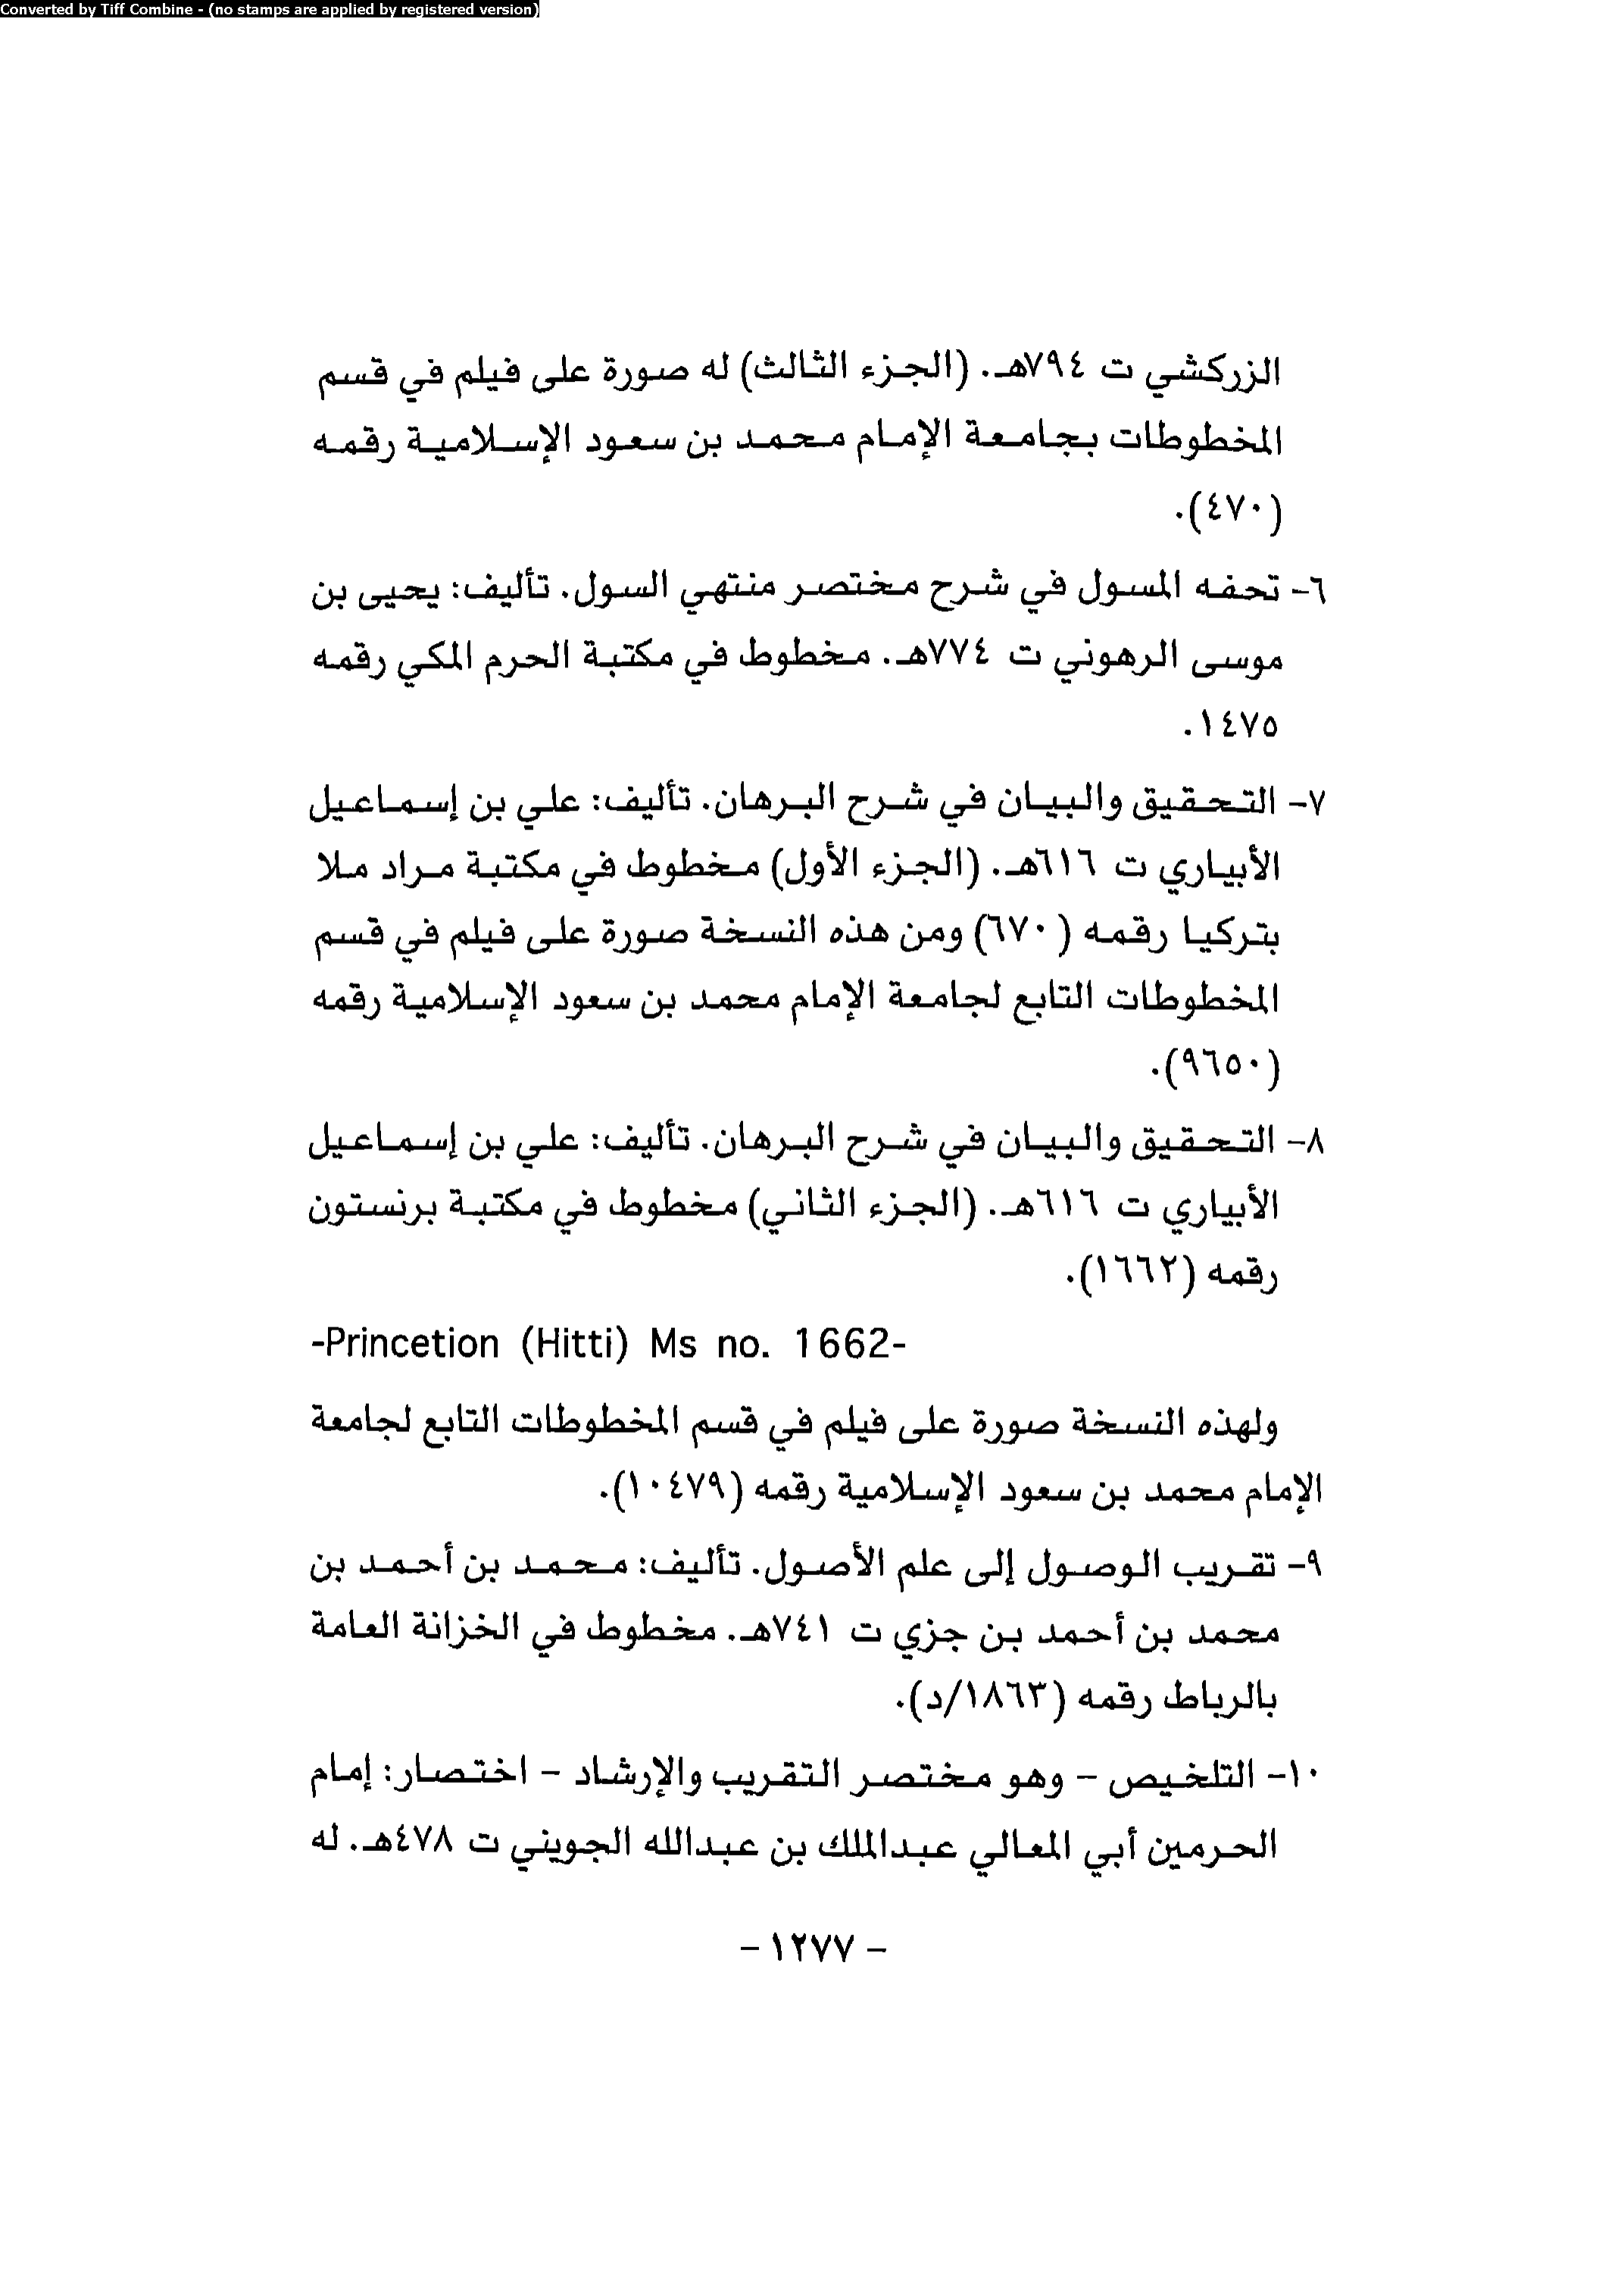 Converted by Tiff Combine - (no stamps are applied by registered version)
الزركشي ت ٧٩٤هـ. (الجزء الثالث) له صورة على فيلم في قسم
المخطوطات بجامعة الإمام محمد بن سعود الإسلامية رقمه
(٤٧٠).
٦- تحفه المسول في شرح مختصر منتهي السول. تأليف: يحيى بن
موسى الرهوني ت ٧٧٤هـ. مخطوط في مكتبة الحرم المكي رقمه
١٤٧٥.
٧- التحقيق والبيان في شرح البرهان. تأليف: علي بن إسماعيل
الأبياري ت ٦١٦هـ. (الجزء الأول) مخطوط في مكتبة مراد ملا
بتركيا رقمه (٦٧٠) ومن هذه النسخة صورة على فيلم في قسم
المخطوطات التابع لجامعة الإمام محمد بن سعود الإسلامية رقمه
(٩٦٥٠).
٨- التحقيق والبيان في شرح البرهان. تأليف: علي بن إسماعيل
الأبياري ت ٦١٦هـ. (الجزء الثاني) مخطوط في مكتبة برنستون
رقمه (١٦٦٢).
-Princetion (Hitti) Ms no. 1662-
ولهذه النسخة صورة على فيلم في قسم المخطوطات التابع لجامعة
الإمام محمد بن سعود الإسلامية رقمه (١٠٤٧٩).
٩- تقريب الوصول إلى علم الأصول. تأليف: محمد بن أحمد بن
محمد بن أحمد بن جزي ت ٧٤١هـ. مخطوط في الخزانة العامة
بالرباط رقمه (١٨٦٣/د).
١٠- التلخيص - وهو مختصر التقريب والإرشاد - اختصار: إمام
الحرمين أبي المعالي عبدالملك بن عبدالله الجويني ت ٤٧٨هـ. له
- ١٢٧٧ -